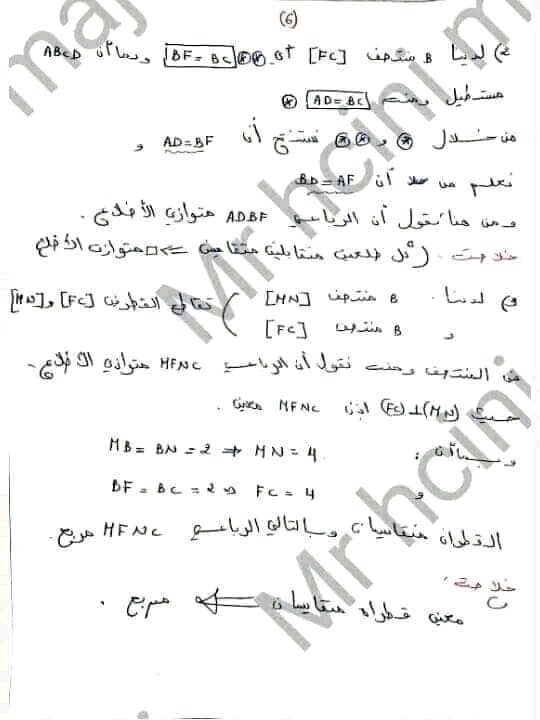 (6)
ع) لدينا B منتصف [FC] إذن BF = BC ⊛⊛ وبما أن ABCD
مستطيل ومنه AD = BC ⊛
من خلال ⊛ و ⊛⊛ نستنتج أن AD = BF و
نعلم من أن BD = AF
ومن هنا نقول أن الرباعي ADBF متوازي الأضلاع.
خلاصة: (كل ضلعين متقابلين متقايسين ⇐ □ متوازي الأضلاع
لدينا. B منتصف [MN] تقاطع القطرين [FC] و [MN]
و B منتصف [FC]
في المنتصف ومنه نقول أن الرباعي MFNC متوازي الأضلاع.
حيث (FC) ⊥ (MN) إذن MFNC معين.
وبما أن: MB = BN = 2 ⇒ MN = 4
و BF = BC = 2 ⇒ FC = 4
القطران متقايسان وبالتالي الرباعي MFNC مربع.
خلاصة:
معين قطراه متقايسان ⇐ مربع.
Mr hcini maj
Mr hcini